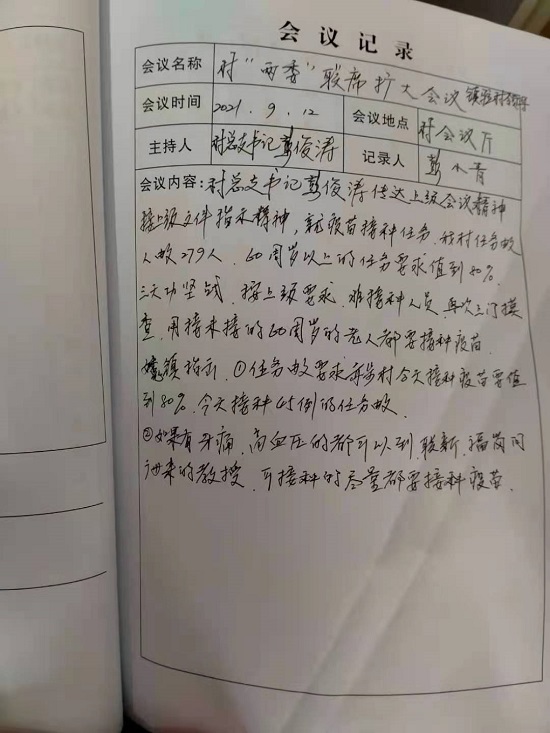 会议记录
会议名称 村“两委”联席扩大会议
会议时间 2021.9.12 会议地点 村会议厅
主持人 村总支书记彭俊涛 记录人 彭水青
会议内容:村总支书记彭俊涛传达上级会议精神
按上级文件指示精神,新疫苗接种任务,我村任务数
人数279人、60周岁以上的任务要求值到80%.
三天功坚战、按上级要求、难接种人员、再次上门摸
查、用接未接的60周岁的老人都要接种疫苗.
镇指示、①任务数要求 村今天接种疫苗要值
到80%、今天接种45例的任务数.
②如果有牙痛、高血压的都可以到、联新、福
来的教授、可接种的尽量都要接种疫苗.